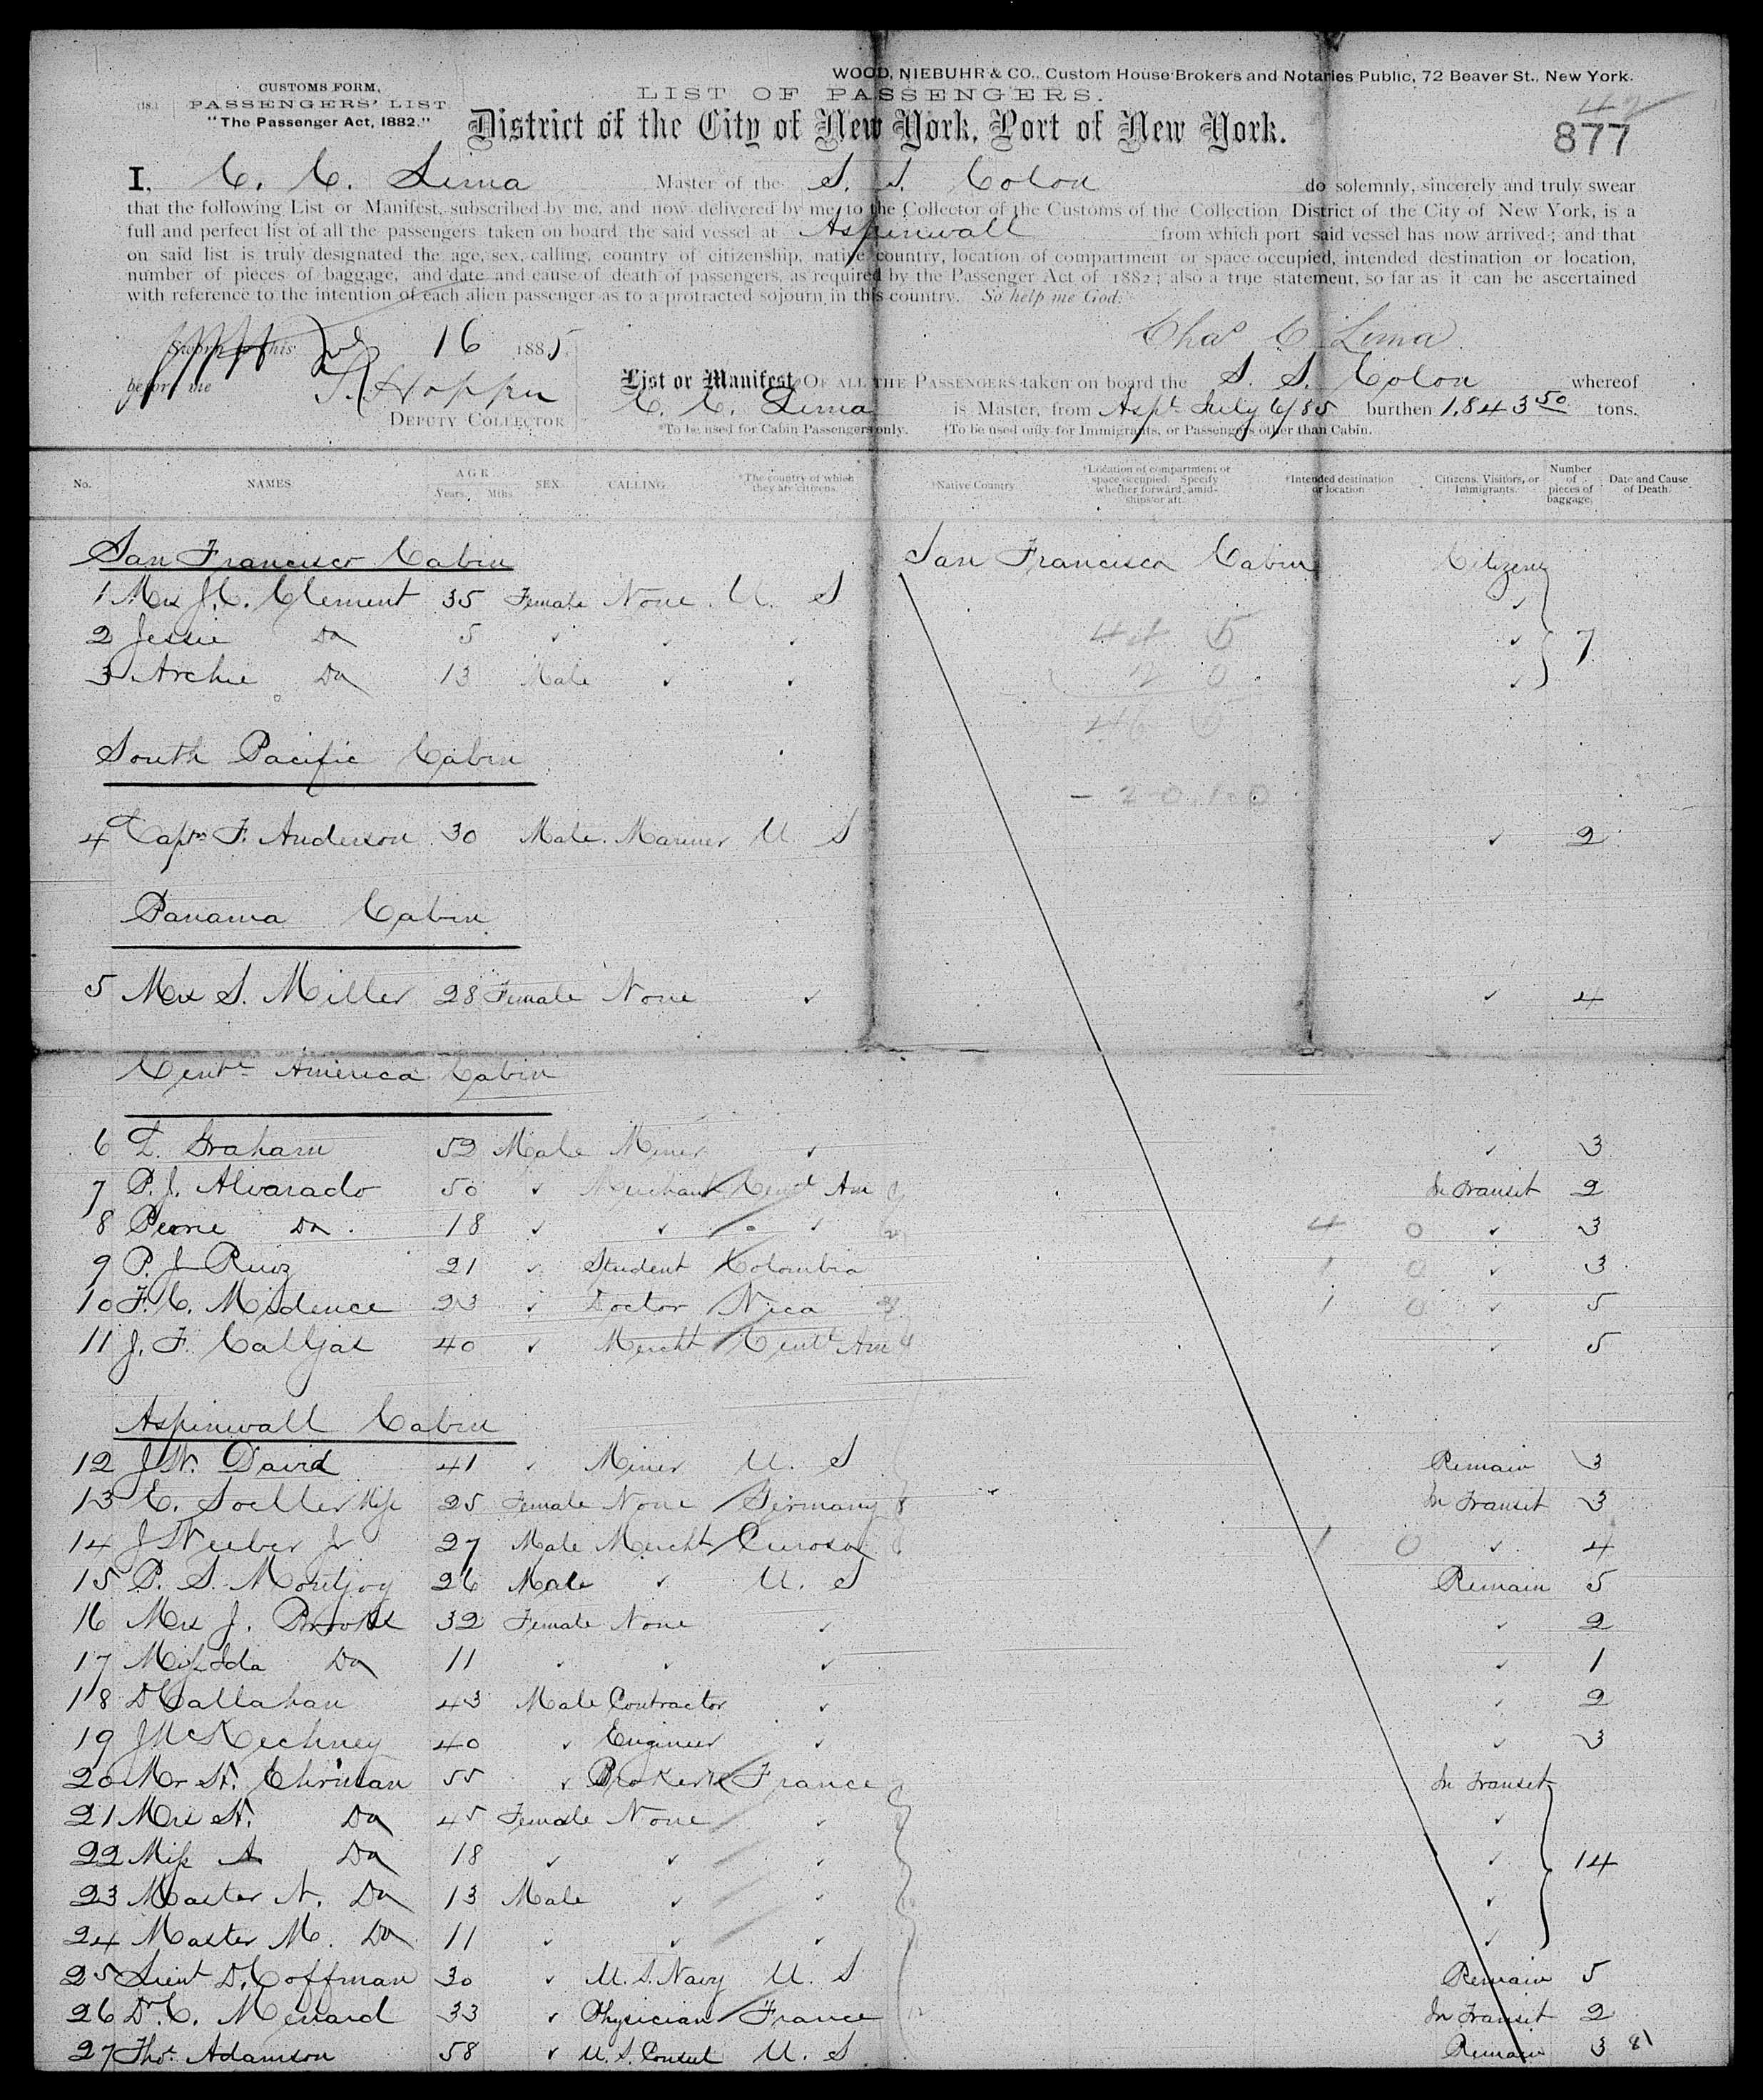 WOOD, NIEBUHR & CO., Custom House Brokers and Notaries Public, 72 Beaver St., New York.
CUSTOMS FORM,
PASSENGERS' LIST
"The Passenger Act, 1882."
LIST OF PASSENGERS.
District of the City of New York, Port of New York.
42
877
I, C. C. Lima Master of the S. S. Colon do solemnly, sincerely and truly swear
that the following List or Manifest, subscribed by me, and now delivered by me to the Collector of the Customs of the Collection District of the City of New York, is a
full and perfect list of all the passengers taken on board the said vessel at Aspinwall from which port said vessel has now arrived; and that
on said list is truly designated the age, sex, calling, country of citizenship, native country, location of compartment or space occupied, intended destination or location,
number of pieces of baggage, and date and cause of death of passengers, as required by the Passenger Act of 1882; also a true statement, so far as it can be ascertained
with reference to the intention of each alien passenger as to a protracted sojourn in this country. So help me God.
Sworn to this 16 1885.
before me
DEPUTY COLLECTOR
Chas C Lima
List or Manifest OF ALL THE PASSENGERS taken on board the S. S. Colon whereof
C. C. Lima is Master, from Aspl July 6/85 burthen 1.843 50 tons.
*To be used for Cabin Passengers only. †To be used only for Immigrants, or Passengers other than Cabin.
No. NAMES. AGE Years. Mths. SEX. CALLING. *The country of which they are citizens. †Native Country †Location of compartment or space occupied. Specify whether forward, amidships or aft. †Intended destination or location Citizens, Visitors, or Immigrants. Number of pieces of baggage. Date and Cause of Death.
San Francisco Cabin San Francisco Cabin Citizens
1 Mrs J. C. Clement 35 Female None U. S ✓
2 Jessie Do 5 ✓ ✓ ✓ ✓ 7
3 Archie Do 13 Male ✓ ✓ ✓
South Pacific Cabin
4 Capt F. Anderson 30 Male Mariner U S ✓ 2
Panama Cabin
5 Mrs S. Miller 28 Female None ✓ ✓ 4
Centl America Cabin
6 Graham 52 Male Miner ✓ ✓ 3
7 P. J. Alvarado 50 ✓ Merchant Centl Am In Transit 2
8 Do 18 ✓ ✓ ✓ 4 0 ✓ 3
9 P. J. Ruiz 21 ✓ Student Colombia 1 0 ✓ 3
10 F. C. Midence 23 ✓ Doctor Nica 1 0 ✓ 5
11 J. F. 40 ✓ Mercht Centl Am ✓ 5
Aspinwall Cabin
12 J. W. David 41 ✓ Miner U. S Remain 3
13 E. Soeller Miss 25 Female None Germany In Transit 3
14 27 Male Mercht 1 0 ✓ 4
15 P. S. Montjoy 26 Male ✓ U. S Remain 5
16 Mrs J. Brooks 32 Female None ✓ ✓ 2
17 Miss Ida Do 11 ✓ ✓ ✓ ✓ 1
18 D Callahan 43 Male Contractor ✓ ✓ 2
19 J McKechney 40 ✓ Engineer ✓ ✓ 3
20 Mr H. Ehrman 55 ✓ Broker France In Transit
21 Mrs H. Do 45 Female None ✓ ✓
22 Miss A Do 18 ✓ ✓ ✓ ✓ 14
23 Master N. Do 13 Male ✓ ✓ ✓
24 Master M. Do 11 ✓ ✓ ✓ ✓
25 Lieut D. Coffman 30 ✓ U. S. Navy U. S Remain 5
26 Dr C. Menard 33 ✓ Physician France 12 In Transit 2
27 Thos. Adamson 58 ✓ U. S. Consul U. S Remain 3 81